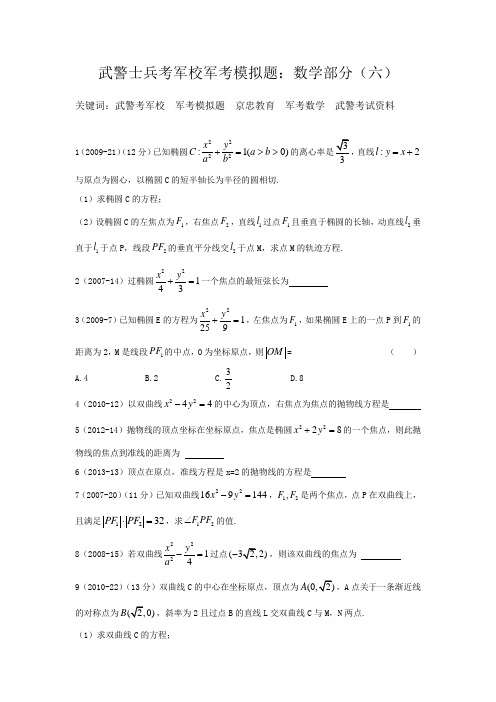 武警士兵考军校军考模拟题：数学部分（六）
关键词：武警考军校 军考模拟题 京忠教育 军考数学 武警考试资料
1（2009-21）（12 分）已知椭圆 $C:\frac{x^2}{a^2}+\frac{y^2}{b^2}=1(a>b>0)$ 的离心率是 $\frac{\sqrt{3}}{3}$，直线 $l:y=x+2$
与原点为圆心，以椭圆 C 的短半轴长为半径的圆相切.
（1）求椭圆 C 的方程；
（2）设椭圆 C 的左焦点为 $F_1$，右焦点 $F_2$，直线 $l_1$ 过点 $F_1$ 且垂直于椭圆的长轴，动直线 $l_2$ 垂
直于 $l_1$ 于点 P，线段 $PF_2$ 的垂直平分线交 $l_2$ 于点 M，求点 M 的轨迹方程.
2（2007-14）过椭圆 $\frac{x^2}{4}+\frac{y^2}{3}=1$ 一个焦点的最短弦长为
3（2009-7）已知椭圆 E 的方程为 $\frac{x^2}{25}+\frac{y^2}{9}=1$，左焦点为 $F_1$，如果椭圆 E 上的一点 P 到 $F_1$ 的
距离为 2，M 是线段 $PF_1$ 的中点，O 为坐标原点，则 $|OM|$= （ ）
A.4 B.2 C.$\frac{3}{2}$ D.8
4（2010-12）以双曲线 $x^2-4y^2=4$ 的中心为顶点，右焦点为焦点的抛物线方程是
5（2012-14）抛物线的顶点坐标在坐标原点，焦点是椭圆 $x^2+2y^2=8$ 的一个焦点，则此抛
物线的焦点到准线的距离为
6（2013-13）顶点在原点，准线方程是 x=2 的抛物线的方程是
7（2007-20）（11 分）已知双曲线 $16x^2-9y^2=144$，$F_1,F_2$ 是两个焦点，点 P 在双曲线上，
且满足 $|PF_1|\cdot|PF_2|=32$，求 $\angle F_1PF_2$ 的值.
8（2008-15）若双曲线 $\frac{x^2}{a^2}-\frac{y^2}{4}=1$ 过点 $(-3\sqrt{2},2)$，则该双曲线的焦点为
9（2010-22）（13 分）双曲线 C 的中心在坐标原点，顶点为 $A(0,\sqrt{2})$，A 点关于一条渐近线
的对称点为 $B(\sqrt{2},0)$，斜率为 2 且过点 B 的直线 L 交双曲线 C 与 M，N 两点.
（1）求双曲线 C 的方程；